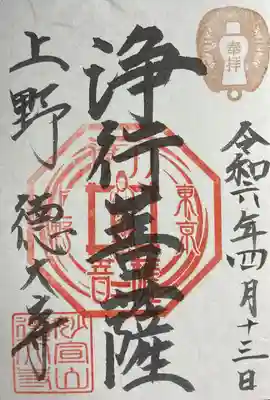 奉拝
令和六年四月十三日
浄行菩薩
東京
上野
徳大寺